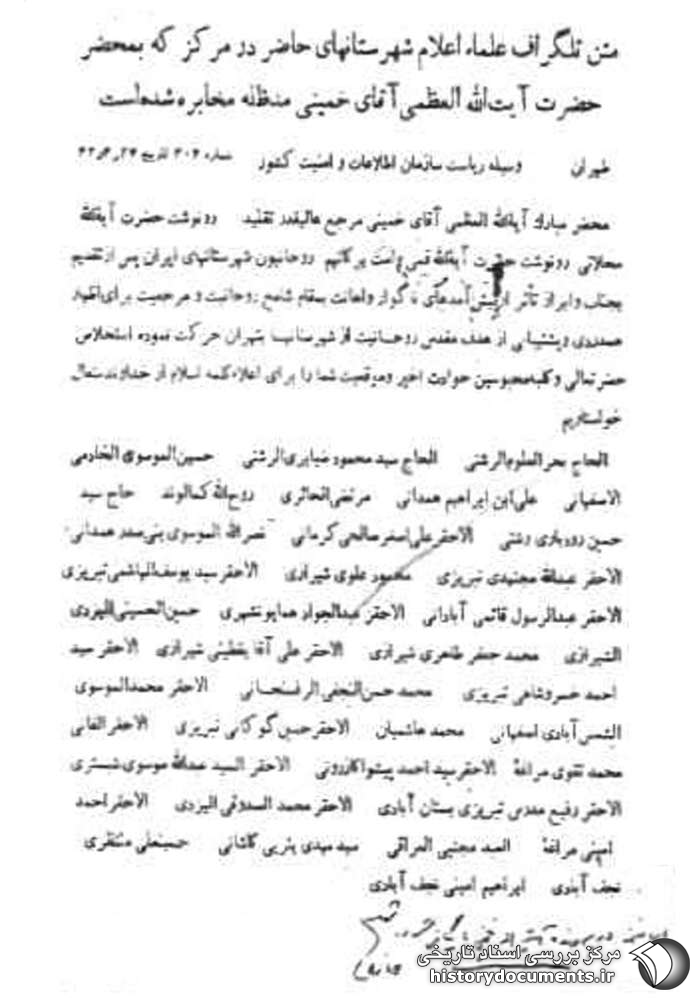 متن تلگراف علماء اعلام شهرستانهای حاضر در مرکز که بمحضر
حضرت آیت‌الله العظمی آقای خمینی مدظله مخابره شده‌است
طهران وسیله ریاست سازمان اطلاعات و امنیت کشور شماره ۳۰۴ تاریخ
محضر مبارک آیةالله العظمی آقای خمینی مرجع عالیقدر تقلید رونوشت حضرت آیةالله
محلاتی رونوشت حضرت آیةالله قمی دامت برکاتهم روحانیون شهرستانهای ایران پس از تقدیم
تحیات و ابراز تأثر از پیش آمدهای ناگوار و اهانت بمقام شامخ روحانیت و مرجعیت برای اظهار
همدردی و پشتیبانی از هدف مقدس روحانیت از شهرستانها بتهران حرکت نموده استخلاص
حضرتعالی و کلیه محبوسین حوادث اخیر و موفقیت شما را برای اعلاء کلمه اسلام از خداوند متعال
خواستاریم
الحاج بحرالعلوم الرشتی الحاج سید محمود ضیابری الرشتی حسین الموسوی الخادمی
الاصفهانی علی ابن ابراهیم همدانی مرتضی الحائری روح‌الله کمالوند حاج سید
حسین رودباری رشتی الاحقر علی‌اصغر صالحی کرمانی نصرالله الموسوی بنی‌صدر همدانی
الاحقر عبدالله مجتهدی تبریزی محمود علوی شیرازی الاحقر سید یوسف الهاشمی تبریزی
الاحقر عبدالرسول قائمی آبادانی الاحقر عبدالجواد حسن الحسینی الیزدی
الشیرازی محمد جعفر طاهری شیرازی الاحقر علی آقا شیرازی الاحقر سید
احمد خسروشاهی تبریزی محمد حسن النجفی الرفسنجانی الاحقر محمد الموسوی
الشمس‌آبادی اصفهانی محمد هاشمیان الاحقر حسین گوگانی تبریزی الاحقر الفانی
محمد تقوی مراغهٔ الاحقر سید احمد پیشوا کازرونی الاحقر السید عبدالله موسوی شبستری
الاحقر رفیع مدرس تبریزی بستان آبادی الاحقر محمد الصدوقی الیزدی الاحقر احمد
امینی مراغهٔ العبد مجتبی العراقی سید مهدی یثربی کاشانی حسینعلی منتظری
نجف آبادی ابراهیم امینی نجف آبادی
مرکز بررسی اسناد تاریخی
historydocuments.ir